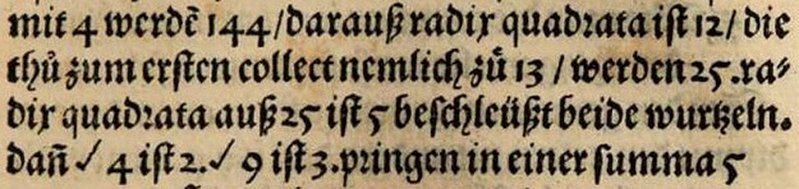 mit 4 werdē 144/darauß radix quadrata ist 12/ die
thů zum ersten collect nemlich zů 13 / werden 25.ra⸗
dix quadrata auß 25 ist 5 beschleüßt beide wurtzeln.
dañ √ 4 ist 2.√ 9 ist 3.pringen in einer summa 5